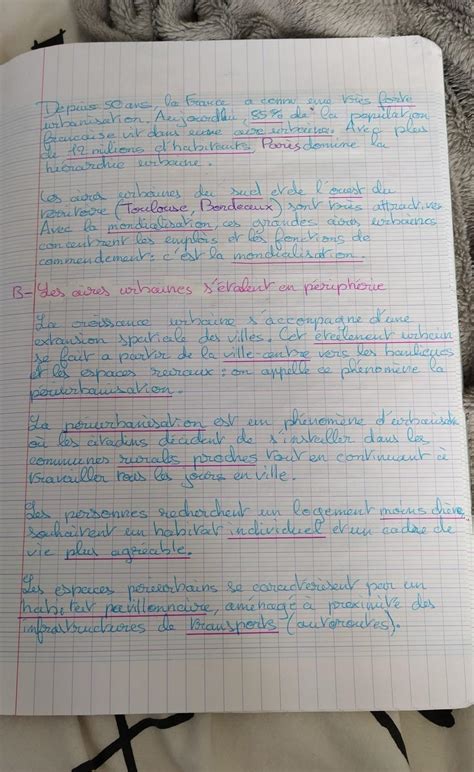 Depuis 50 ans, la France a connu une très forte
urbanisation. Aujourd'hui, 85% de la population
française vit dans une aire urbaine. Avec plus
de 12 millions d'habitants, Paris domine la
hiérarchie urbaine.
Les aires urbaines du sud et de l'ouest du
territoire (Toulouse, Bordeaux) sont très attractives
Avec la mondialisation, ces grandes aires urbaines
concentrent les emplois et les fonctions de
commendement : c'est la mondialisation.
B- Les aires urbaines s'étalent en périphérie
La croissance urbaine s'accompagne d'une
extension spatiale des villes. Cet étalement urbain
se fait a partir de la ville-centre vers les banlieues
et les espaces ruraux : on appelle ce phénomène la
périurbanisation.
La périurbanisation est un phénomène d'urbanisation
où les citadins décident de s'installer dans les
communes rurales proches tout en continuant à
travailler tous les jours en ville.
Les personnes recherchent un logement moins chère,
souhaitent un habitat individuel et un cadre de
vie plus agréable.
Les espaces périurbains se caractérisent par un
habitat pavillonnaire, aménagé à proximité des
infrastructures de transports (autoroutes).